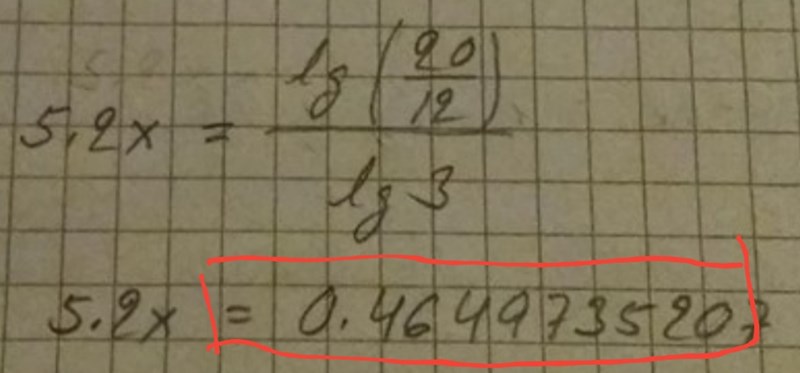 5.2x = lg(20/12) / lg 3
5.2x = 0.4649735207